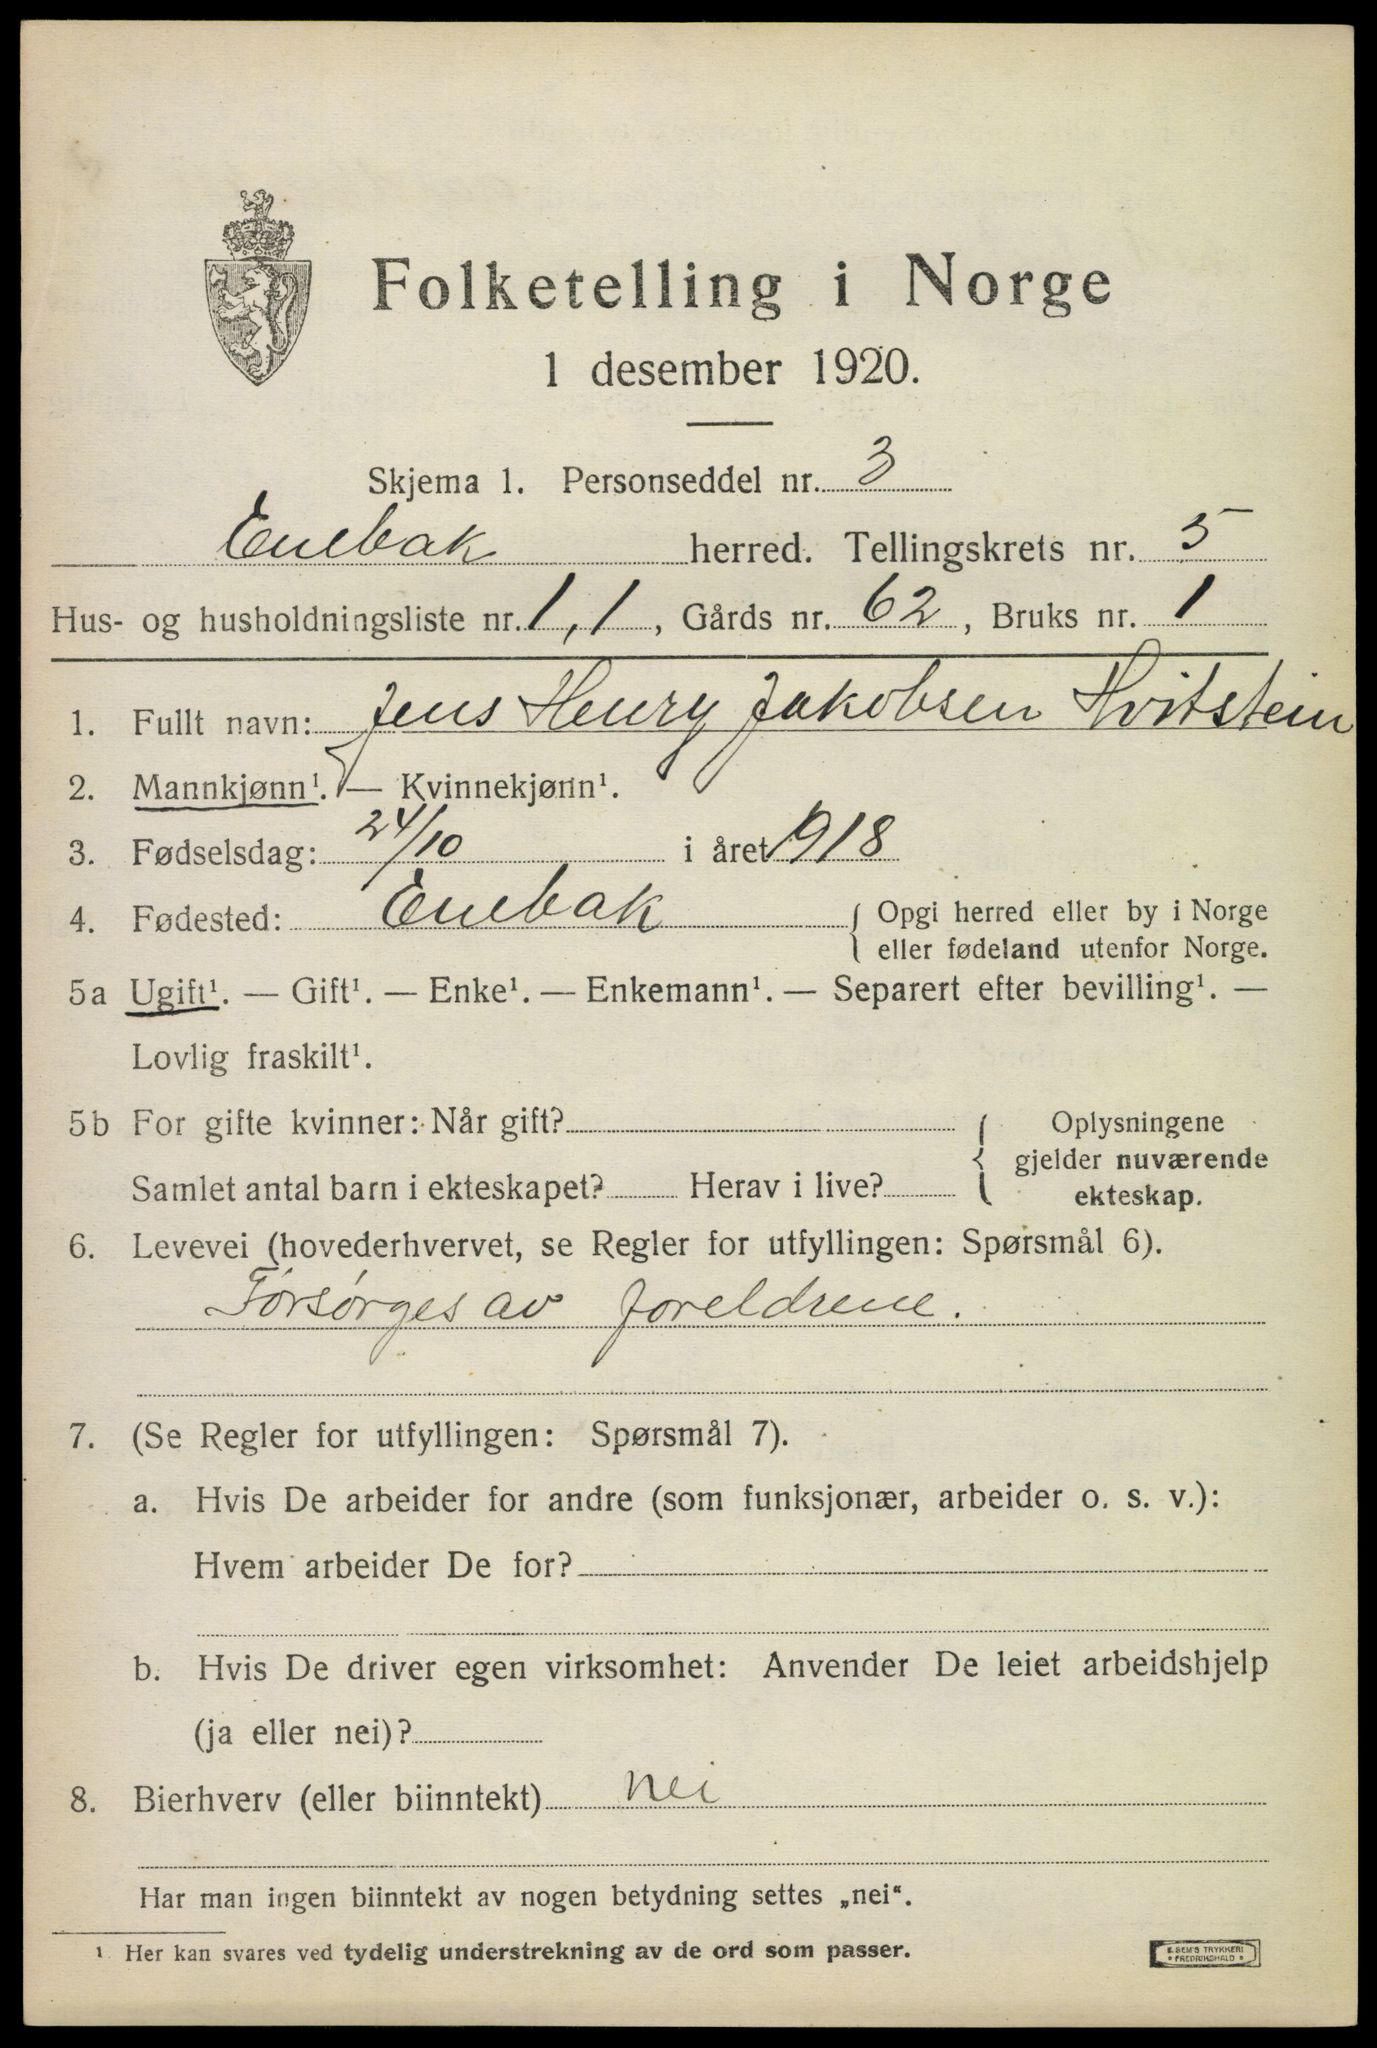 Folketelling i Norge
1 desember 1920.
Skjema 1. Personseddel nr. 3
Enebak herred. Tellingskrets nr. 5
Hus- og husholdningsliste nr. 1,1, Gårds nr. 62, Bruks nr. 1
1. Fullt navn: Jens Henry Jakobsen Hvitstein
2. Mannkjønn¹. — Kvinnekjønn¹.
3. Fødselsdag: 24/10 i året 1918
4. Fødested: Enebak { Opgi herred eller by i Norge
eller fødeland utenfor Norge.
5a Ugift¹. — Gift¹. — Enke¹. — Enkemann¹. — Separert efter bevilling¹. —
Lovlig fraskilt¹.
5b For gifte kvinner: Når gift? { Oplysningene
gjelder nuværende
Samlet antal barn i ekteskapet? Herav i live? ekteskap.
6. Levevei (hovederhvervet, se Regler for utfyllingen: Spørsmål 6).
Forsørges av foreldrene.
7. (Se Regler for utfyllingen: Spørsmål 7).
a. Hvis De arbeider for andre (som funksjonær, arbeider o. s. v.):
Hvem arbeider De for?
b. Hvis De driver egen virksomhet: Anvender De leiet arbeidshjelp
(ja eller nei)?
8. Bierhverv (eller biinntekt) nei
Har man ingen biinntekt av nogen betydning settes „nei“.
¹ Her kan svares ved tydelig understrekning av de ord som passer.
E. SEM'S TRYKKERI
• FREDRIKSHALD •